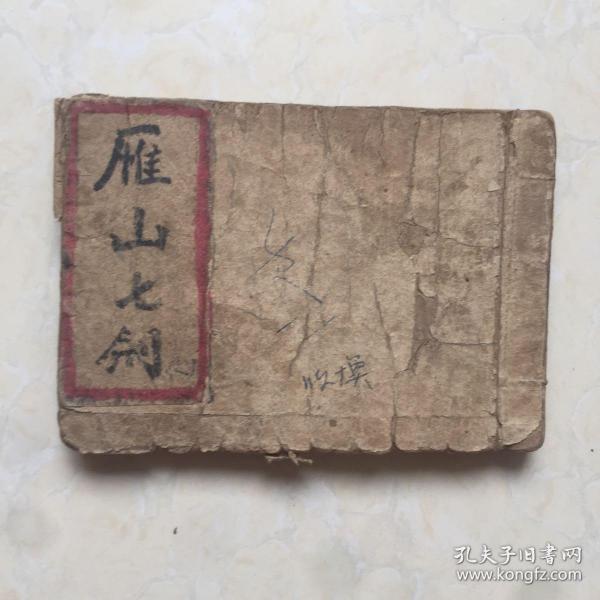 雁山七剑
孔夫子旧書网
www.kongfz.com